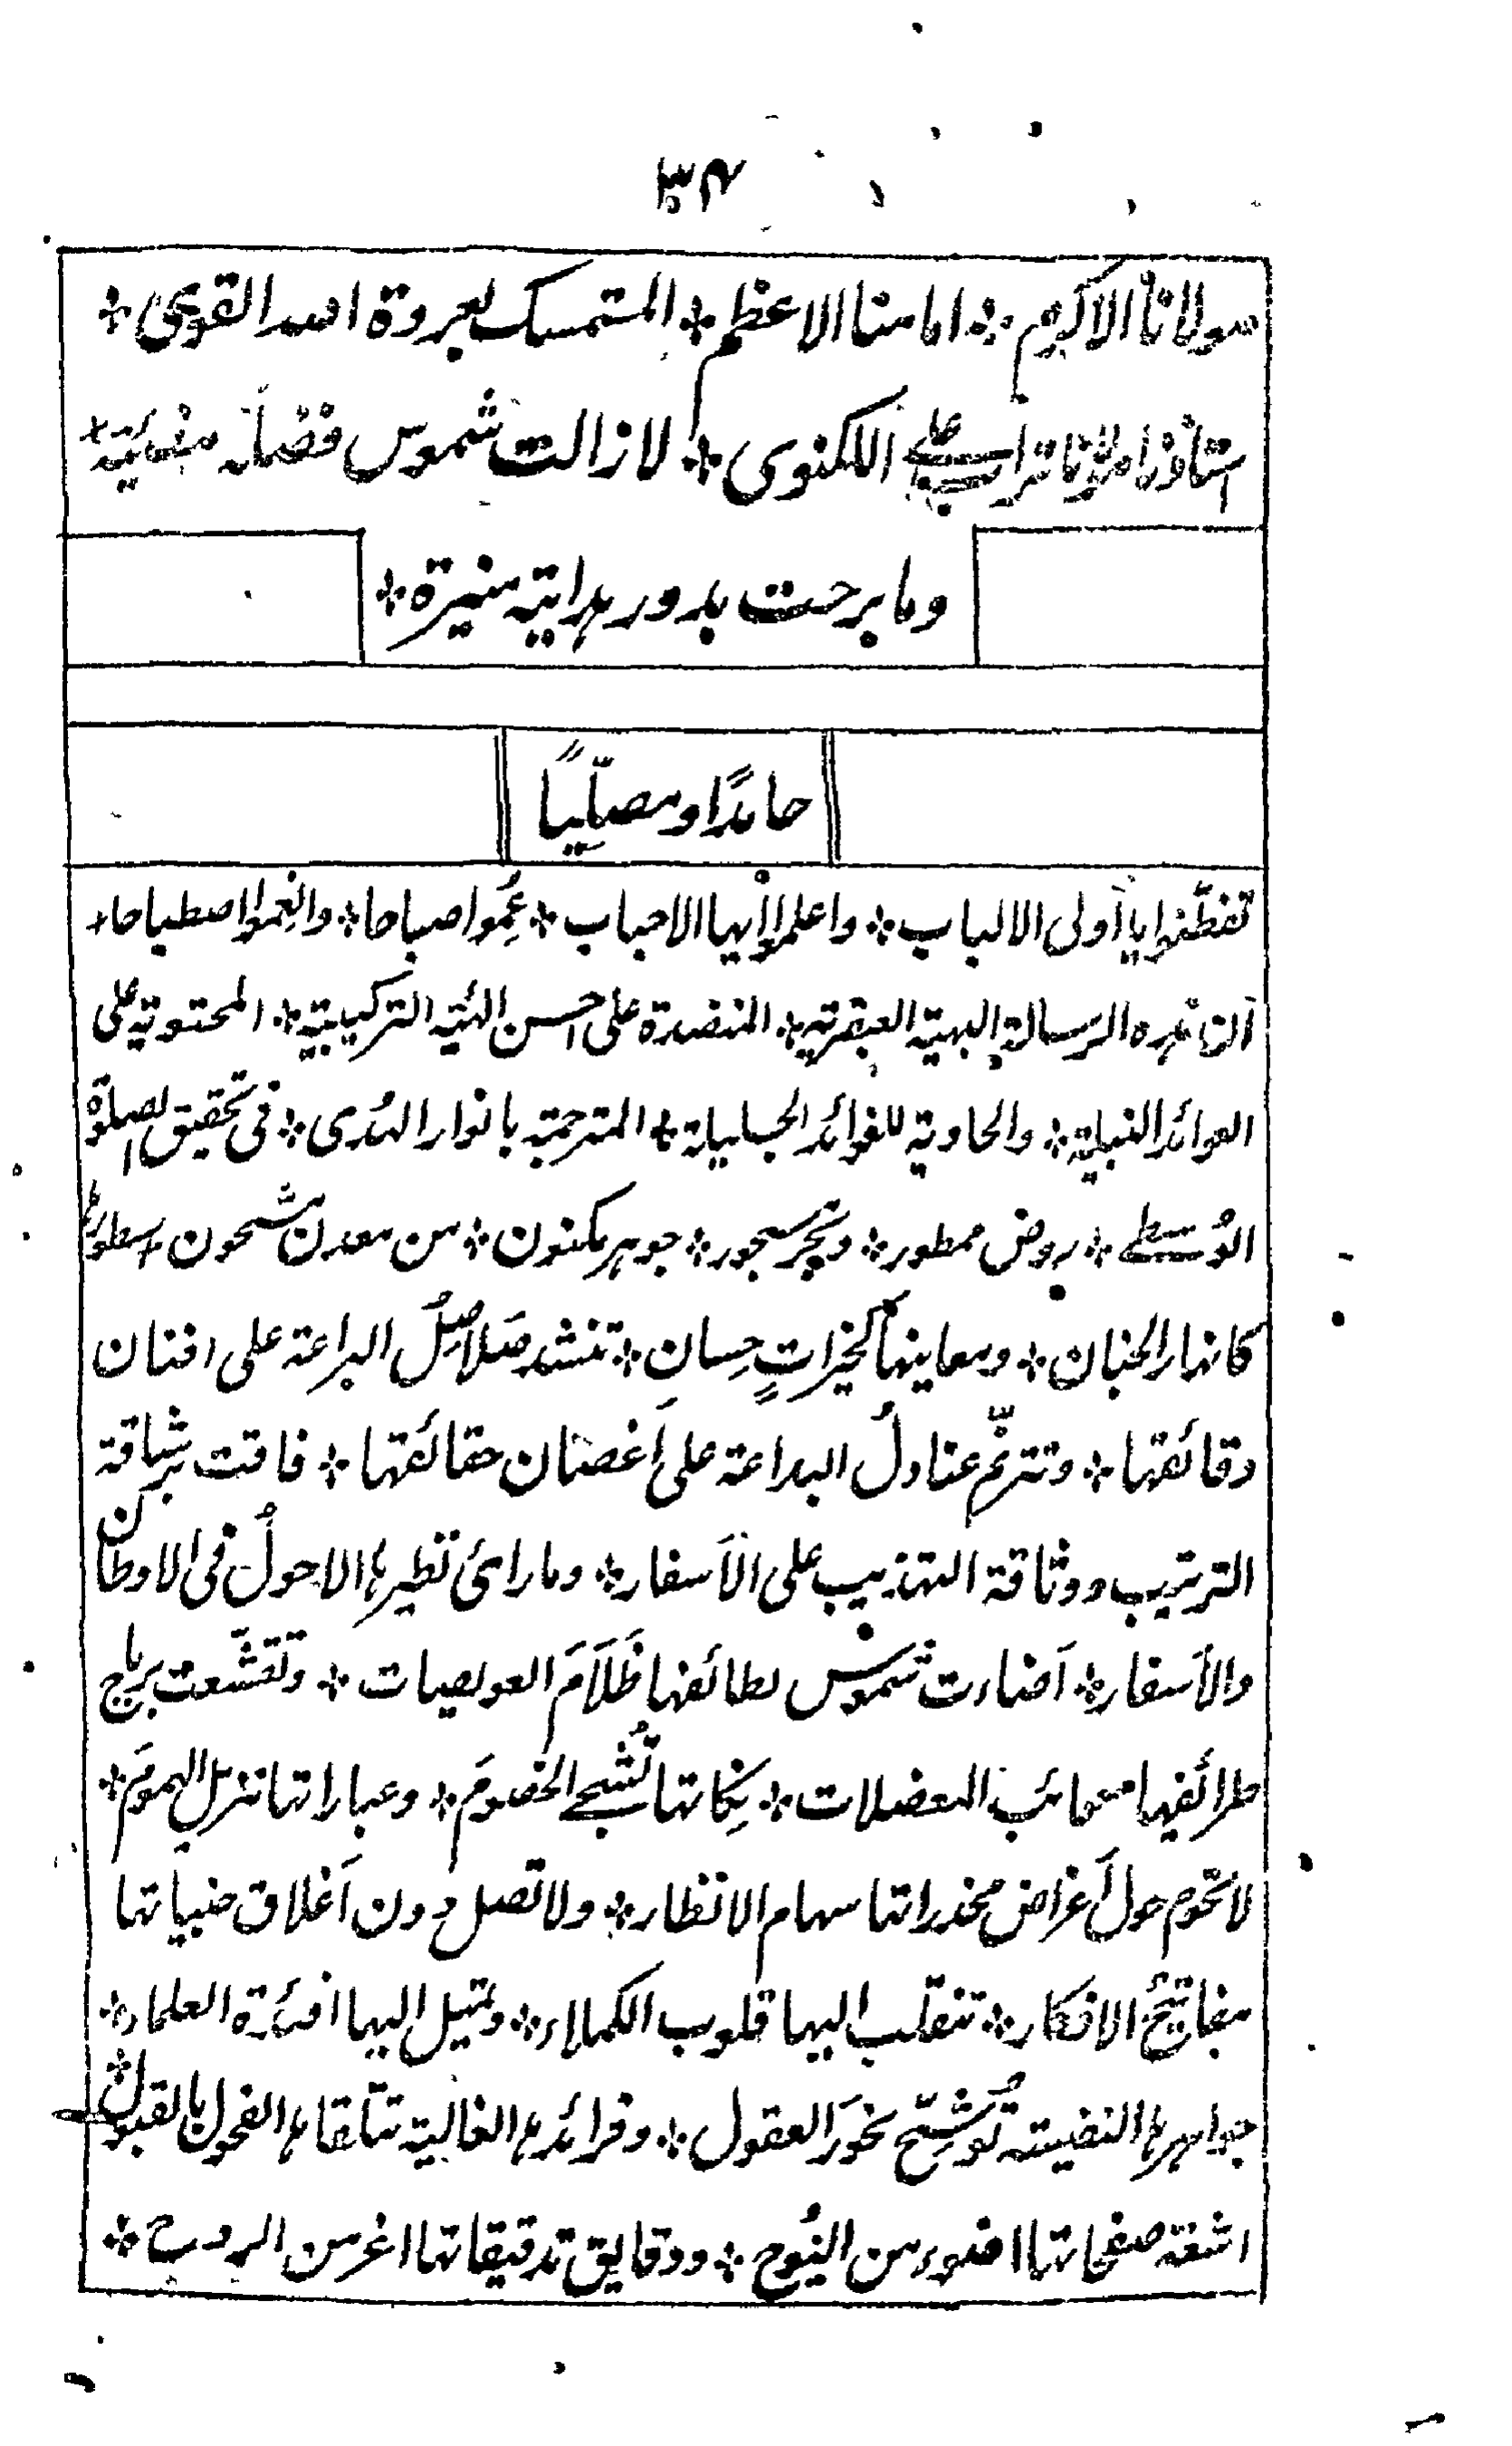 ٣٤
مولانا الاكرم ٭ امامنا الاعظم ٭ المتمسك بعروة الله القوى ٭
استاذنا مولانا تراب على اللكنوى ٭ لازالت شموس فضله مضيئة ٭
وما برحت بدور هدايته منيرة ٭
حامدًا ومصلّيًا
تفطّنوا يا أولى الالباب ٭ واعلموا أيها الاحباب ٭ عِمُوا صباحا ٭ وانعِموا اصطباحا ٭
أن هذه الرسالة البهية العبقرية ٭ المنضدة على احسن الهيئة التركيبية ٭ المحتوية على
العوائد النبيلة ٭ والحاوية للفوائد الجليلة ٭ المترجمة بانوار الهُدى ٭ فى تحقيق الصلوة
الوُسطى ٭ روض ممطور ٭ وبحر مسجور ٭ جوهر مكنون ٭ من معدن مشحون ٭ سطورها
كانهار الجنان ٭ ومعاينها كخيراتٍ حِسان ٭ تنشد صَلاصِلُ البراعة على افنان
دقائقها ٭ وتترنّم عنادلُ البداعة على أغصان حقائقها ٭ فاقت برشاقة
الترتيب ووثاقة التهذيب على الأسفار ٭ وما رائ نظيرها الاحولُ فى الاوطان
والأسفار ٭ أضاءت شموس لطائفها ظَلَامَ العويصات ٭ وتقشّعت برياح
طرائفها سحائب المعضلات ٭ نِكاتها تُشجى الخصومَ ٭ وعباراتها تزيل الهمومَ ٭
لا تحوم حول أغراض مخدراتها سهام الانظار ٭ ولا تصل دون أغلاق خبياتها
مفاتيحُ الافكار ٭ تنقلب اليها قلوب الكملاء ٭ وتميل اليها افئدة العلماء ٭
جواهرها النفيسة تُوشِّح نحورَ العقول ٭ وفرائدها الغالية تتلّقاها الفحول بالقبول ٭
اشعة صفحاتها اضوء من اليُوح ٭ ودقايق تدقيقاتها اغر من الروح ٭